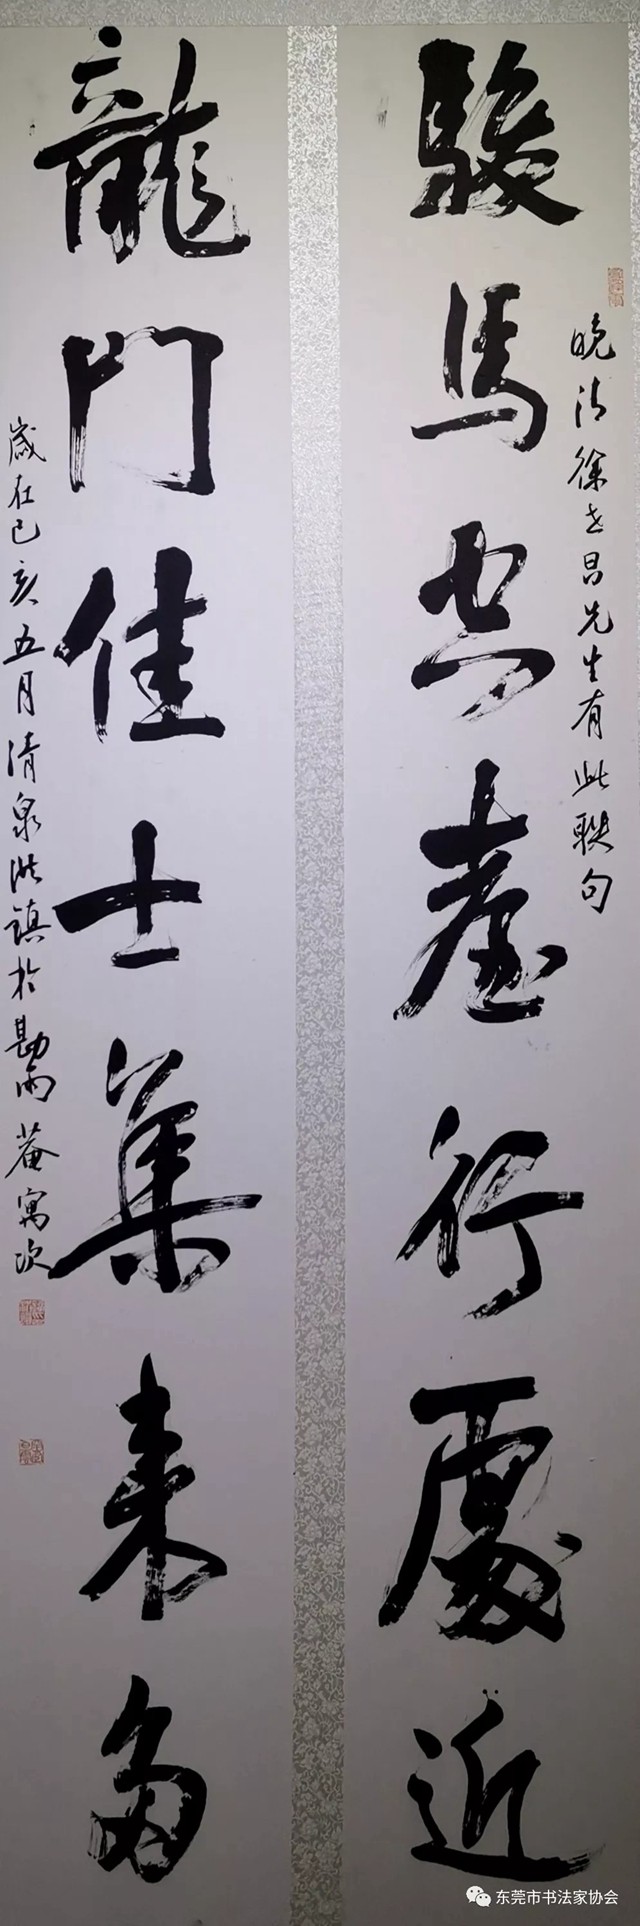 駿馬空臺行處近
晚清徐世昌先生有此聯句
龍門佳士集来多
歲在己亥五月清泉洪鎮於勘雨菴寓次
东莞市书法家协会